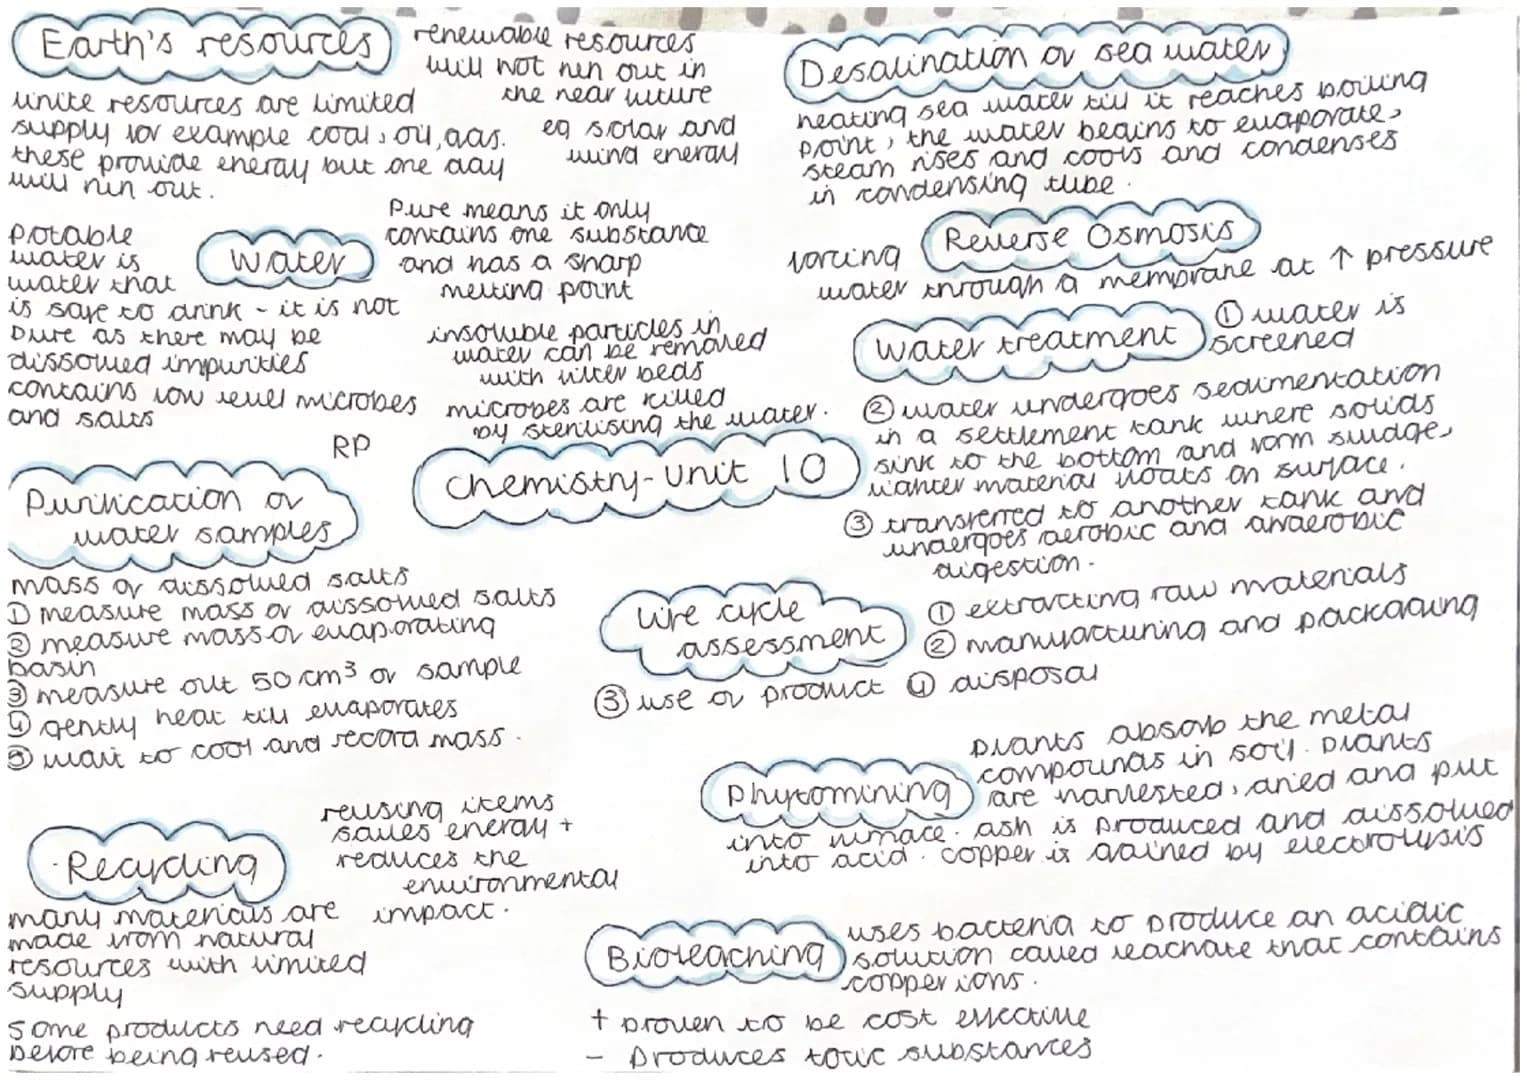 Earth's resources
finite resources are limited
supply for example coal, oil, gas.
these provide energy but one day
will run out.
renewable resources
will not run out in
the near future
eg solar and
wind energy
Water
potable
water is
water that
is safe to drink - it is not
pure as there may be
dissolved impurities
contains low level microbes
and salts
Pure means it only
contains one substance
and has a sharp
melting point
insoluble particles in
water can be removed
with filter beds
microbes are killed
by sterilising the water.
Chemistry - Unit 10
RP
Purification of
water samples
mass of dissolved salts
① measure mass of dissolved salts
② measure mass of evaporating
basin
③ measure out 50cm³ of sample
④ gently heat till evaporates
⑤ wait to cool and record mass.
Recycling
reusing items
saves energy +
reduces the
environmental
impact.
many materials are
made from natural
resources with limited
supply
some products need recycling
before being reused.
Desalination of sea water
heating sea water till it reaches boiling
point, the water begins to evaporate,
steam rises and cools and condenses
in condensing tube.
Reverse Osmosis
forcing
water through a membrane at ↑ pressure
Water treatment
① water is
screened
② water undergoes sedimentation
in a settlement tank where solids
sink to the bottom and form sludge,
lighter material floats on surface.
③ transferred to another tank and
undergoes aerobic and anaerobic
digestion.
Life cycle
assessment
① extracting raw materials
② manufacturing and packaging
③ use of product ④ disposal
Phytomining
plants absorb the metal
compounds in soil. Plants
are harvested, dried and put
into furnace. ash is produced and dissolved
into acid. copper is gained by electrolysis
Bioleaching
uses bacteria to produce an acidic
solution called leachate that contains
copper ions.
+ proven to be cost effective
- Produces toxic substances